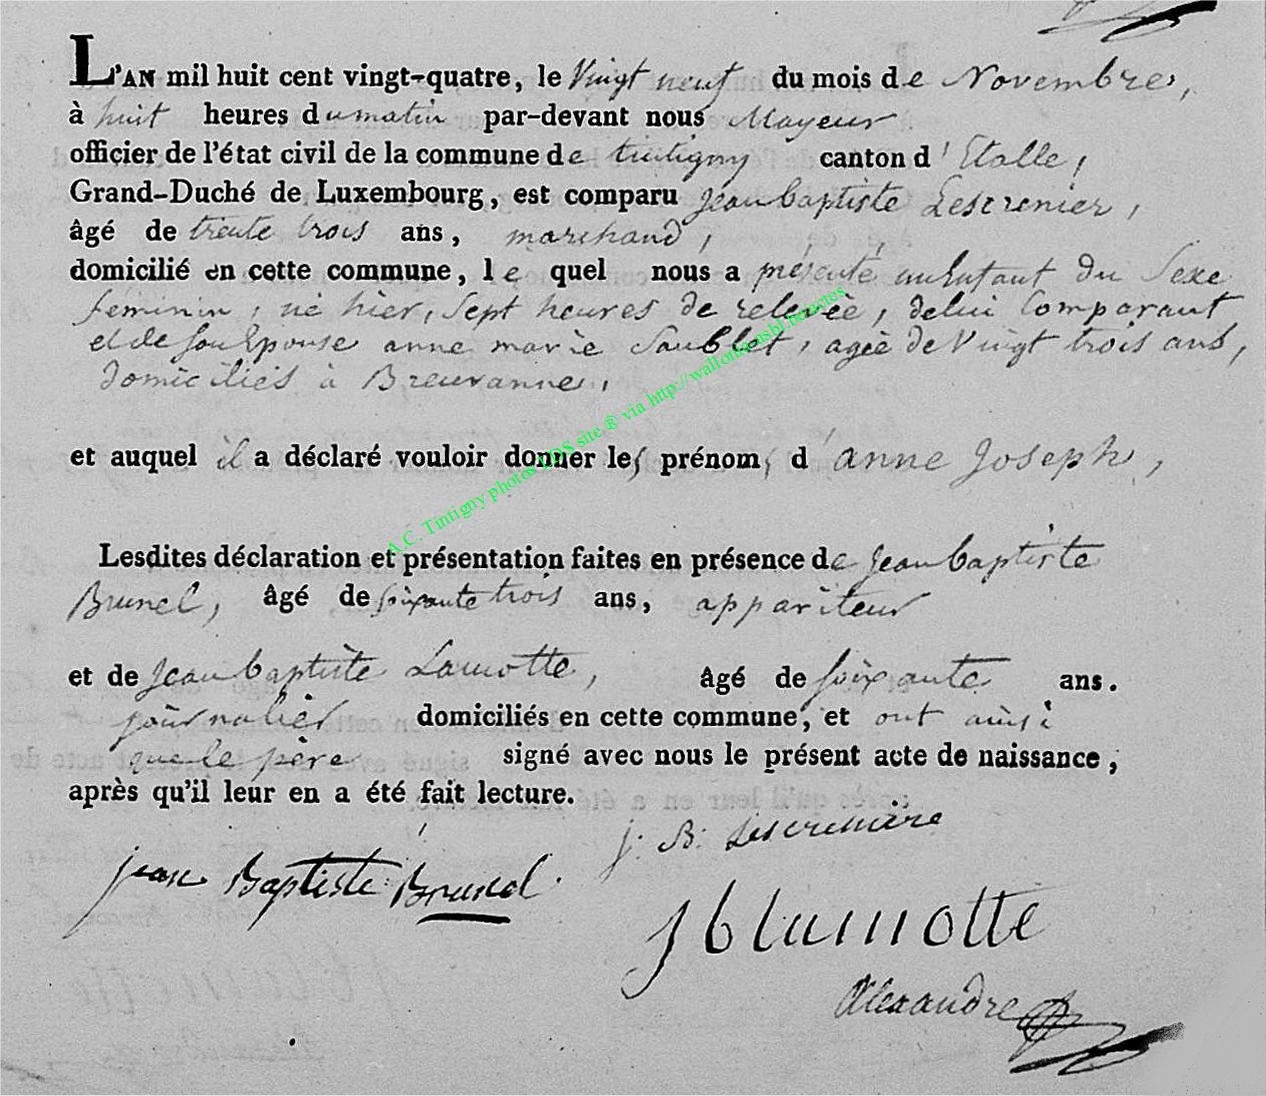 L'AN mil huit cent vingt-quatre, le Vingt neuf du mois de Novembre,
à huit heures du matin par-devant nous Mayeur
officier de l'état civil de la commune de tintigny canton d'Etalle,
Grand-Duché de Luxembourg, est comparu Jean baptiste Lescrenier,
âgé de trente trois ans, marchand,
domicilié en cette commune, le quel nous a présenté un Enfant du Sexe
feminin, né hier, Sept heures de relevée, de lui Comparant
et de son Epouse anne marie Saublet, agée de Vingt trois ans,
domiciliés à Breuvanne,
et auquel il a déclaré vouloir donner les prénoms d'anne Joseph,
Lesdites déclaration et présentation faites en présence de Jean baptiste
Brunel, âgé de soixante trois ans, appariteur
et de Jean baptiste Lamotte, âgé de soixante ans.
journalier domiciliés en cette commune, et ont ainsi
que le père signé avec nous le présent acte de naissance;
après qu'il leur en a été fait lecture.
J: B: Lescreniere
jean Baptiste Brunel.
J b lamotte
Alexandre
A.C. Tintigny photos LDS site ® via http://wallonia.asbl.be/actes